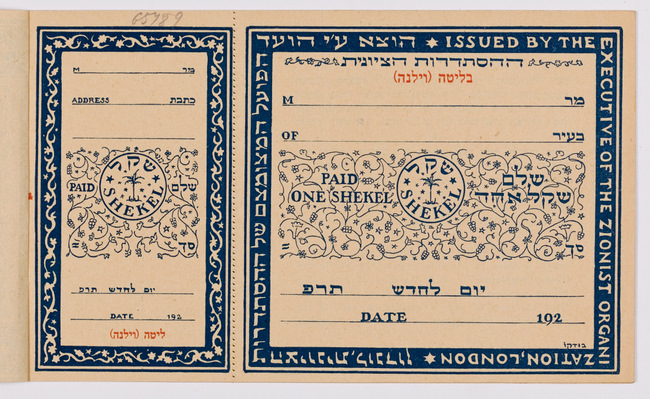 65789
M מר
ADDRESS כתבת
שקל
PAID שלם
SHEKEL
= סך
יום לחדש תרפ
DATE 192
ליטה (וילנה)
הוצא ע״י הועד ISSUED BY THE
EXECUTIVE OF THE ZIONIST ORGANI
ZATION, LONDON
הפועל המצומצם של ההסתדרות
הציונית, לונדון
ההסתדרות הציונית
בליטה (וילנה)
M מר
OF בעיר
PAID שקל שלם
ONE SHEKEL SHEKEL שקל אחד
= סך
יום לחדש תרפ
DATE 192
בודקו